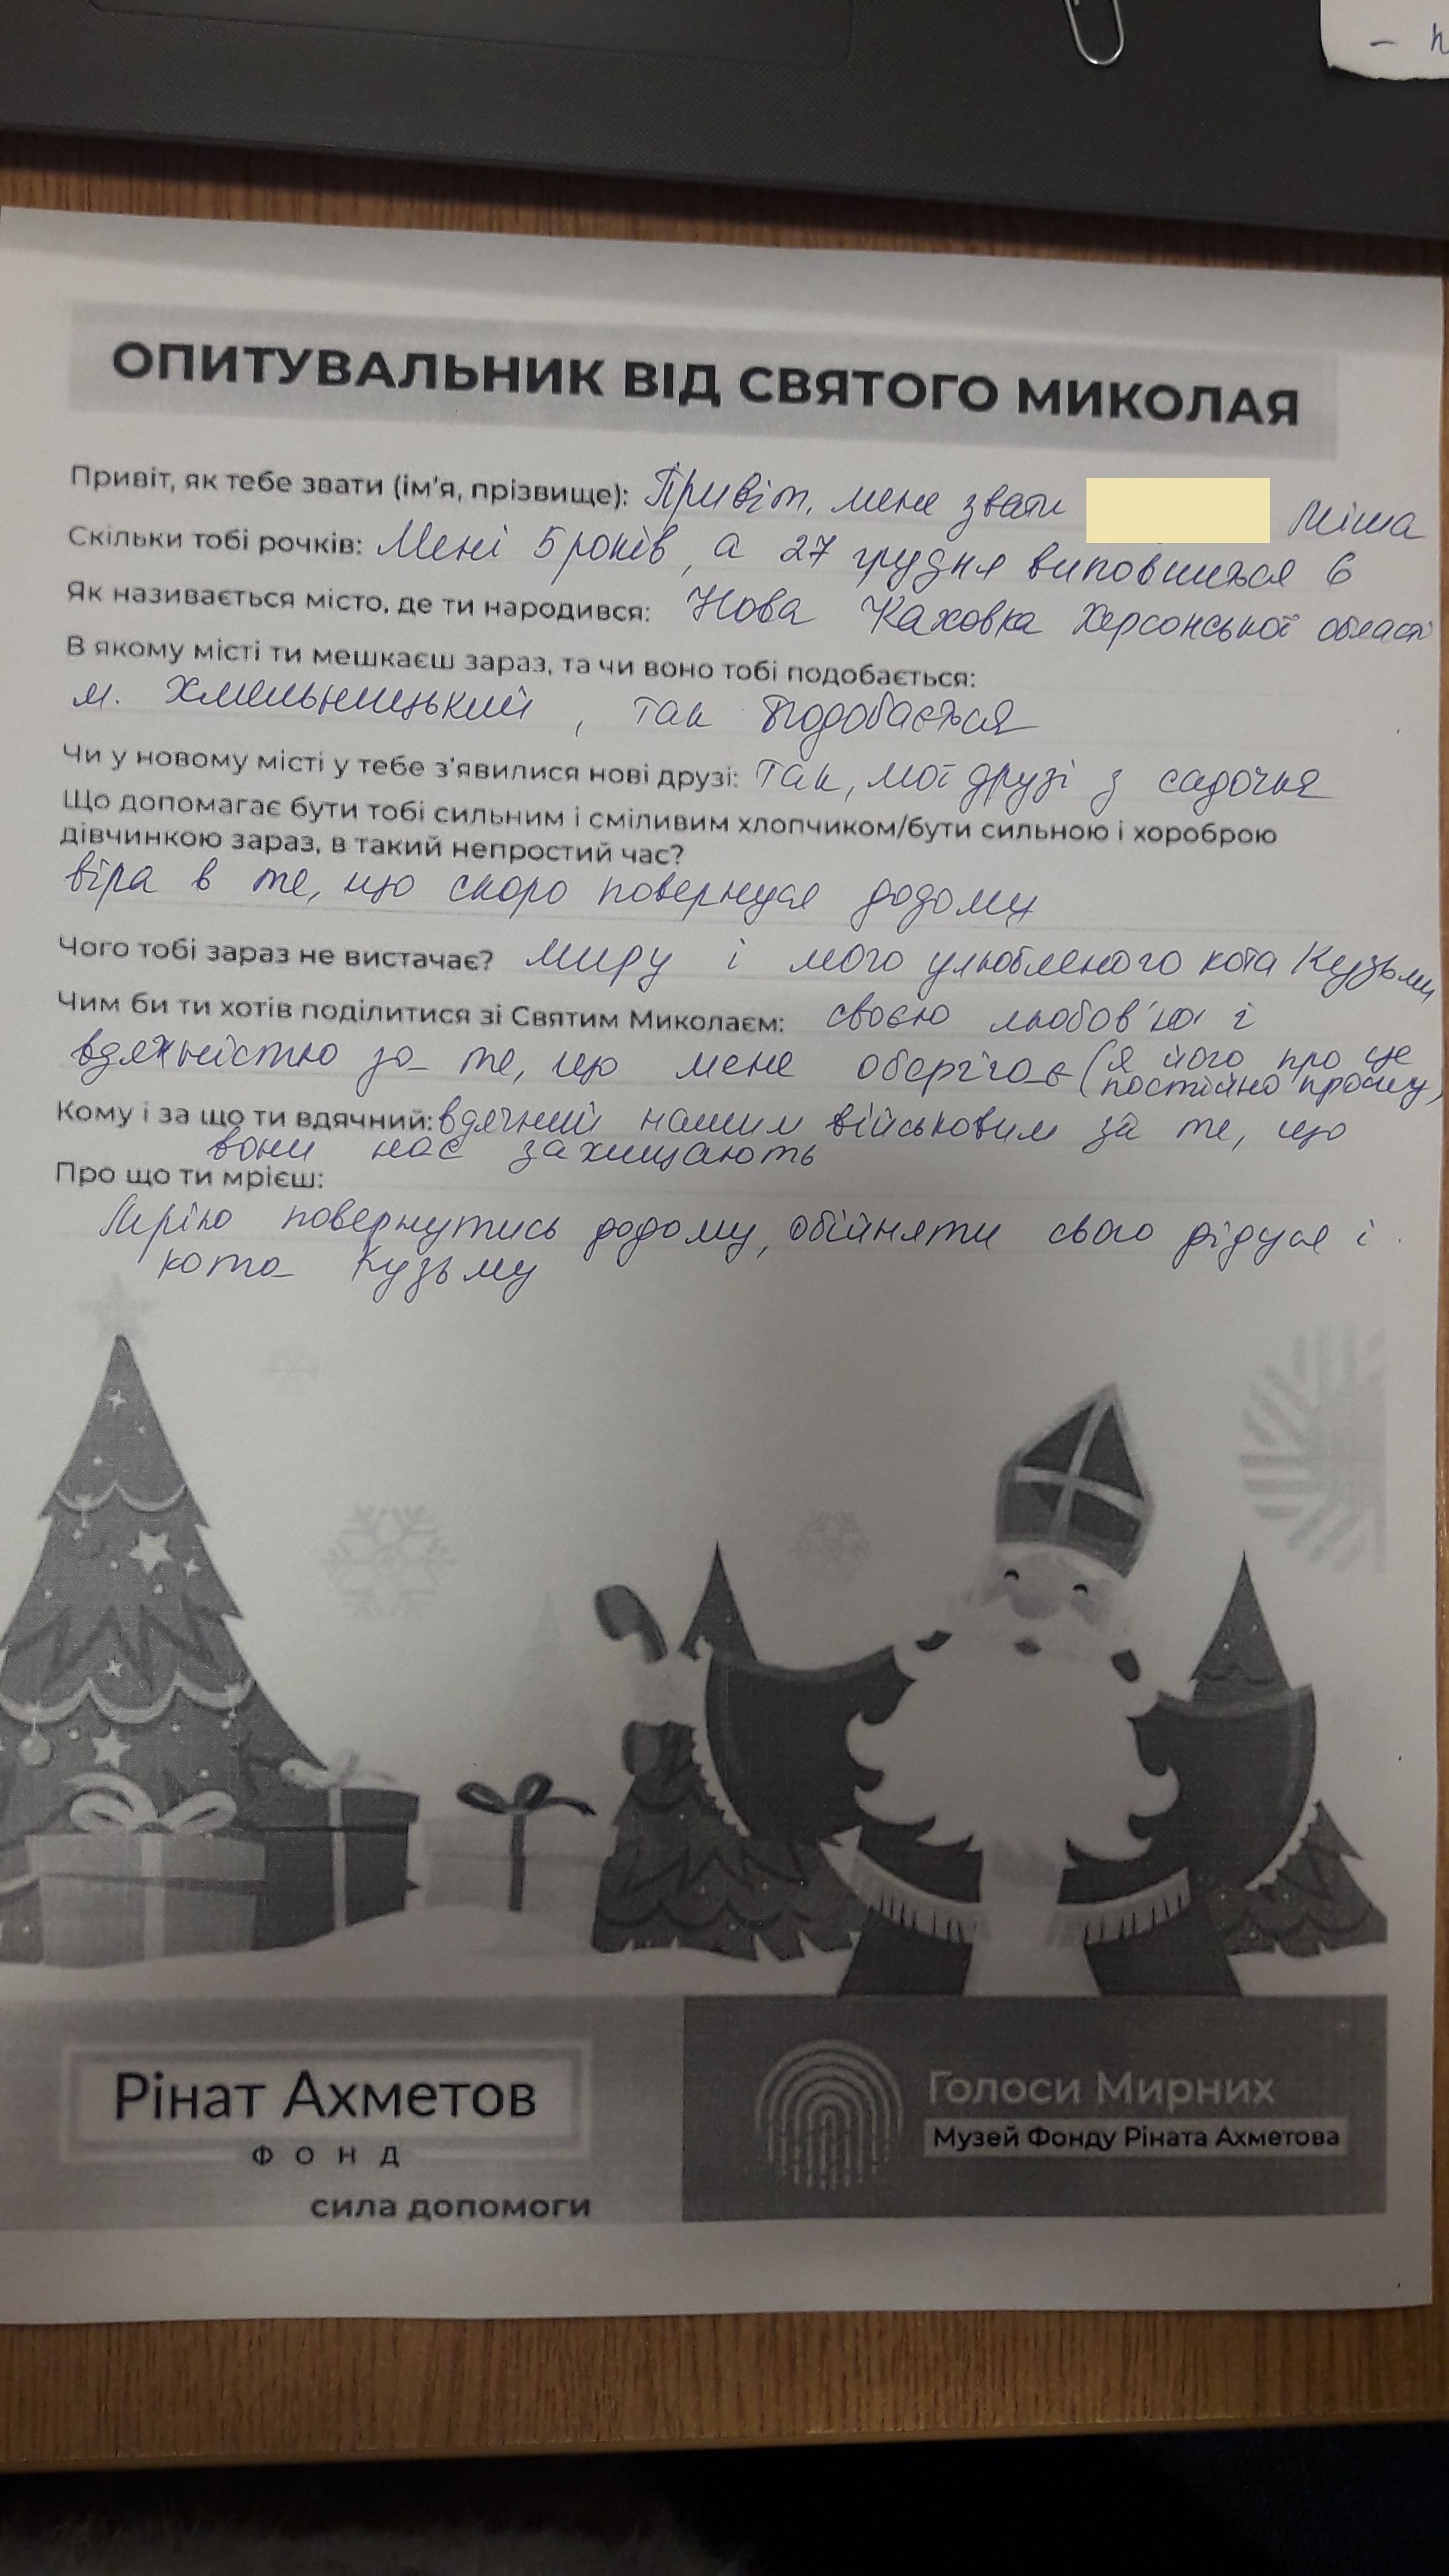 – п
ОПИТУВАЛЬНИК ВІД СВЯТОГО МИКОЛАЯ
Привіт, як тебе звати (ім'я, прізвище): Привіт, мене звати Міша
Скільки тобі рочків: Мені 5 років, а 27 грудня виповниться 6
Як називається місто, де ти народився: Нова Каховка Херсонської області
В якому місті ти мешкаєш зараз, та чи воно тобі подобається:
м. Хмельницький, так подобається
Чи у новому місті у тебе з'явилися нові друзі: так, мої друзі з садочка
Що допомагає бути тобі сильним і сміливим хлопчиком/бути сильною і хороброю
дівчинкою зараз, в такий непростий час?
віра в те, що скоро повернуся додому
Чого тобі зараз не вистачає? миру і мого улюбленого кота Кузьми
Чим би ти хотів поділитися зі Святим Миколаєм: своєю любов'ю і
вдячністю за те, що мене оберігає (я його про це
постійно прошу)
Кому і за що ти вдячний: вдячний нашим військовим за те, що
вони нас захищають
Про що ти мрієш:
Мрію повернутись додому, обійняти свого дідуся і
кота Кузьму
Рінат Ахметов
ФОНД
сила допомоги
Голоси Мирних
Музей Фонду Ріната Ахметова